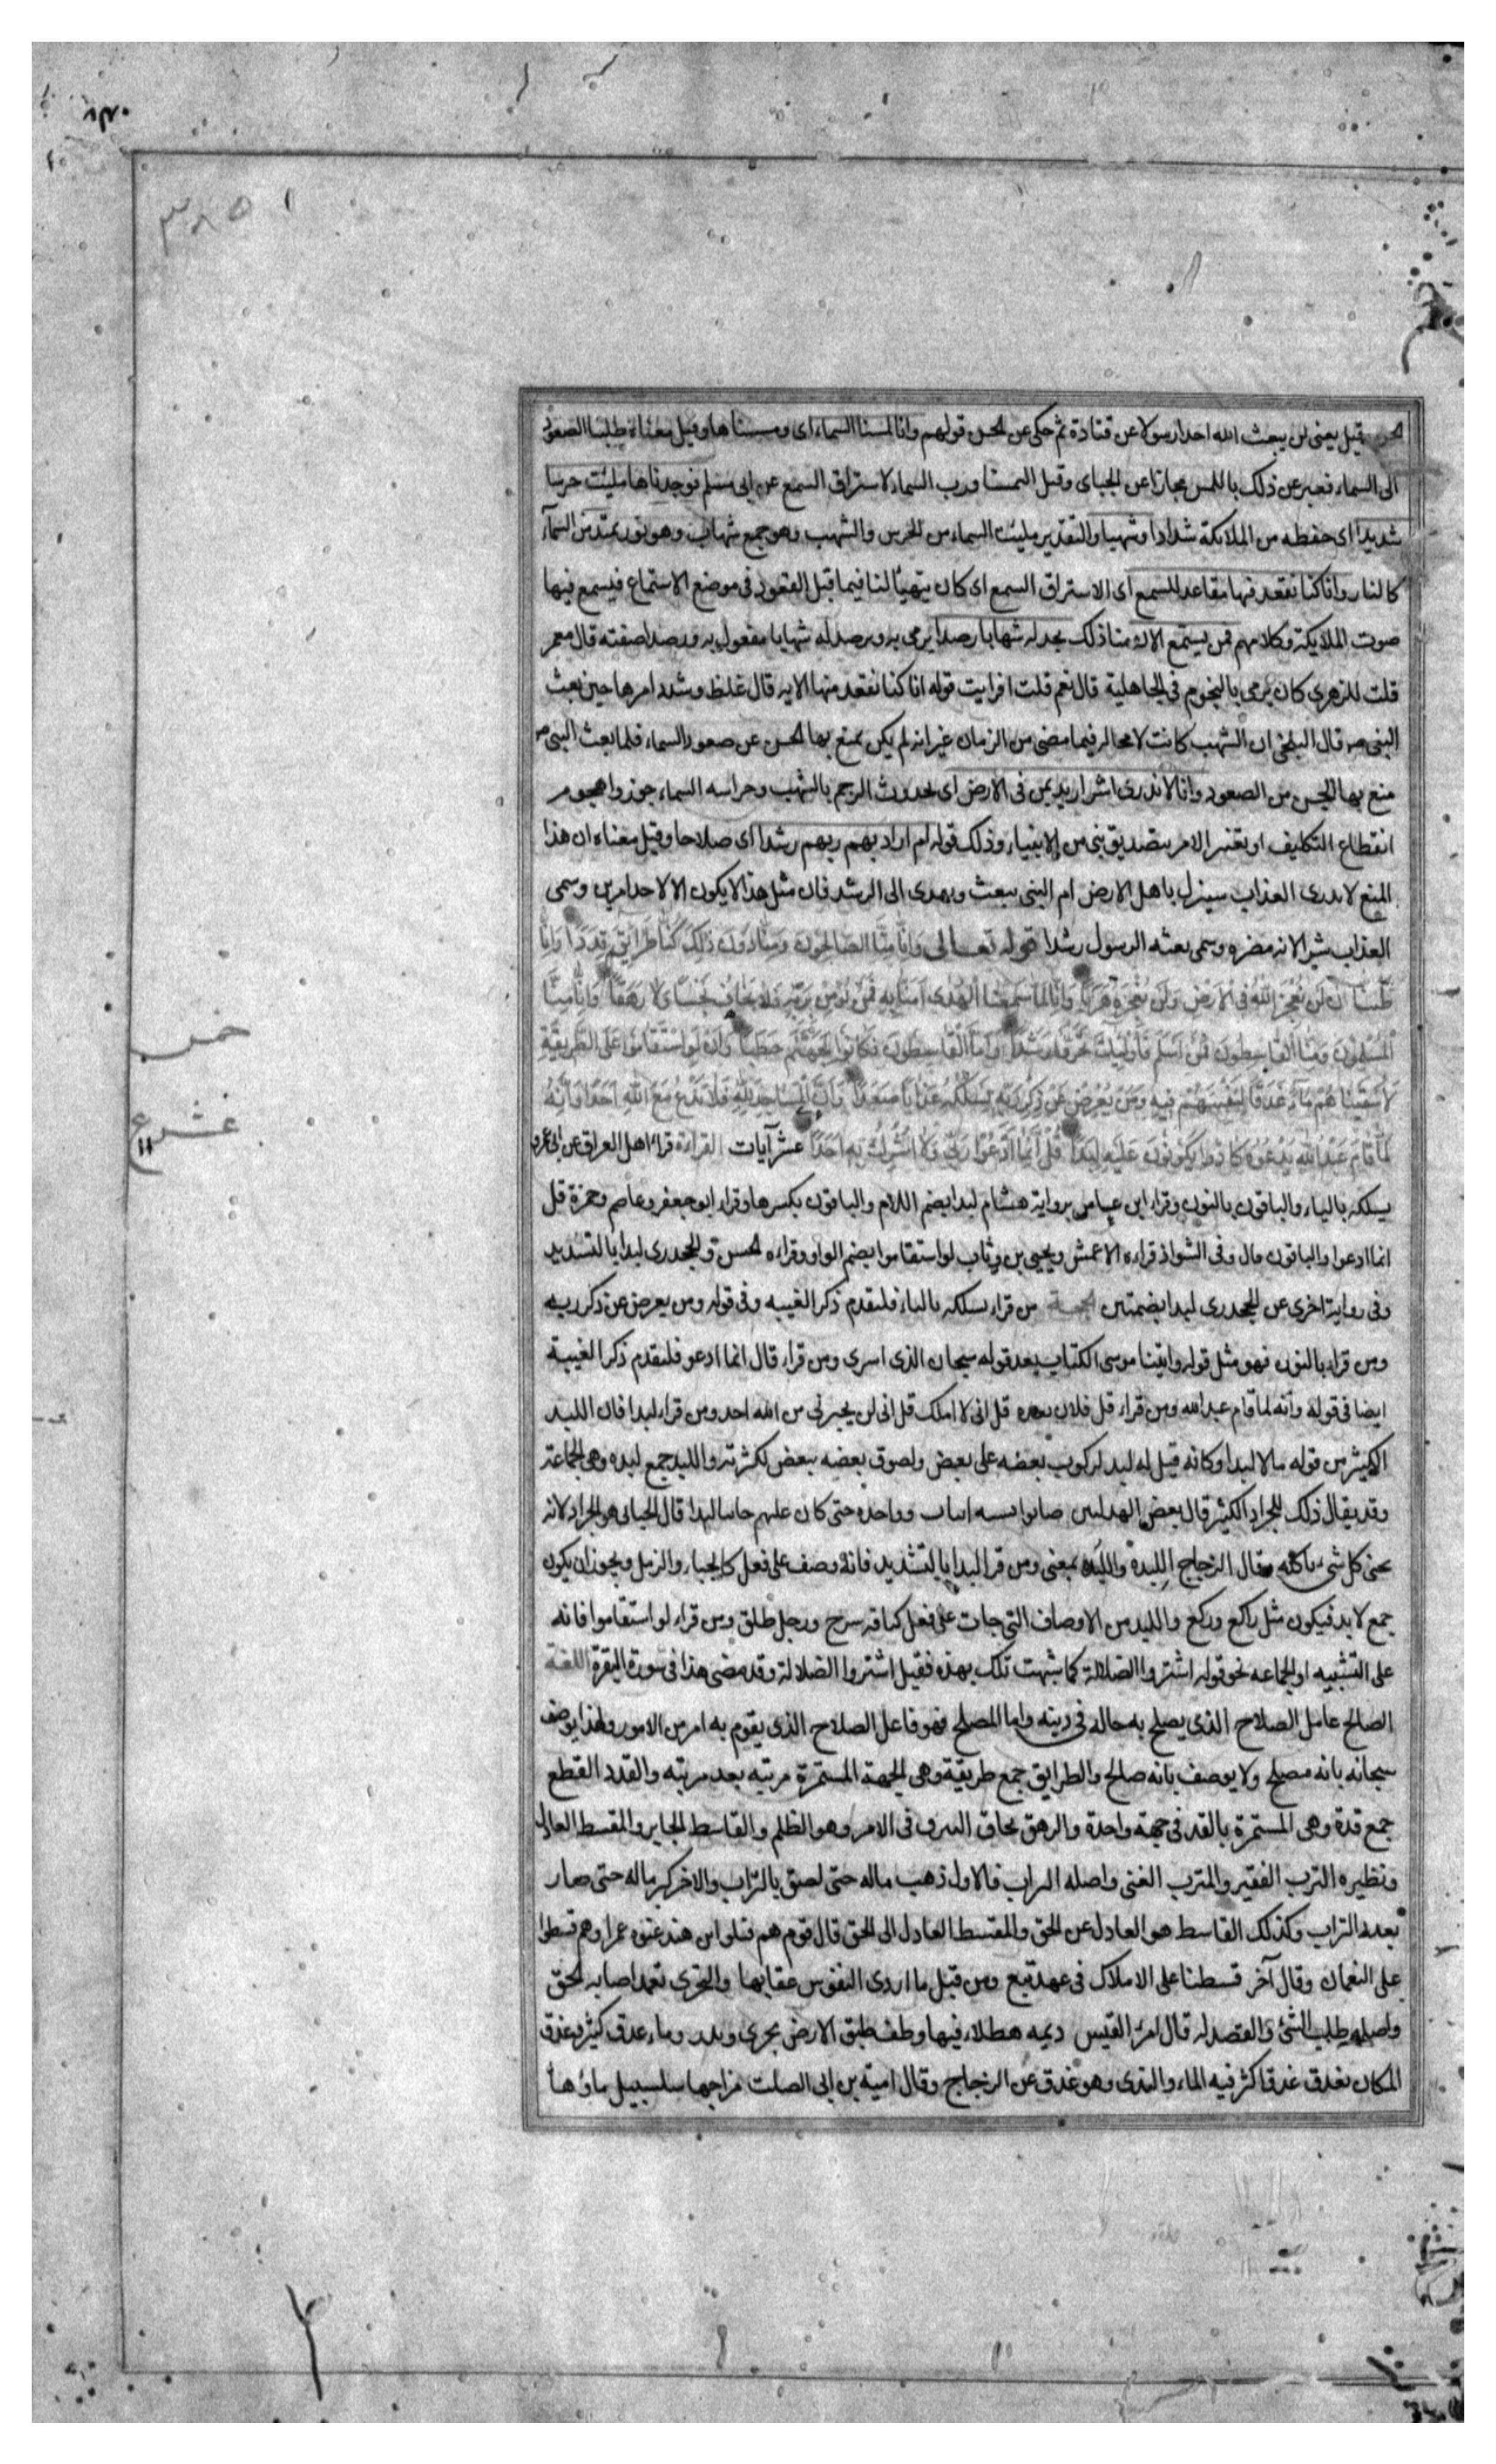 الحسن وقيل يعنى لن يبعث الله احدا رسولا عن قتادة ثم حكى عن الجن قولهم وانا لمسنا السماء اى ومسسناها وقيل معناه طلبنا الصعود
الى السماء فعبر عن ذلك باللمس مجازا عن الجباى وقيل التمسنا قرب السماء لاستراق السمع عن ابى مسلم فوجدناها مليت حرسا
شديدا اى حفظه من الملائكة شدادا وشهبا والتقدير مليت السماء من الحرس والشهب وهو جمع شهاب وهو نور يمتد من السمآء
كالنار وانا كنا نقعد منها مقاعد للسمع اى الاستراق السمع اى كان يتهيأ لنا فيما قبل القعود فى موضع الاستماع فيسمع فيها
صوت الملايكة وكلامهم فمن يستمع الان منا ذلك يجد له شهابا رصدا يرمى به ويرصد له شهابا مفعول به ورصدا صفته قال معمر
قلت للزهرى كان يرمى بالنجوم فى الجاهلية قال نعم قلت افرايت قوله انا كنا نقعد منها الايه قال غلظ وشدد امرها حين بعث
النبى ص قال البلخى ان الشهب كانت لا محالة فيما مضى من الزمان غير انه لم يكن يمنع بها الجن عن صعود السماء فلما بعث النبى ص
منع بها الجن من الصعود وانا لا ندرى اشر اريد بمن فى الارض اى بحدوث الرجم بالشهب وحراسه السماء جوزوا هجوم
انقطاع التكليف او تغيير الامر بتصديق نبى من الانبياء وذلك قوله ام اراد بهم ربهم رشدا اى صلاحا وقيل معناه ان هذا
المنع لا ندرى العذاب سينزل باهل الارض ام النبى يبعث ويهدى الى الرشد فان مثل هذا لا يكون الا لاحد امرين وسمى
العذاب شرا لانه مضره وسمى بعثه الرسول رشدا قوله تعالى وَاَنَّا مِنَّا الصَّالِحُونَ وَمِنَّا دُونَ ذٰلِكَ كُنَّا طَرَائِقَ قِدَدًا وَاَنَّا
ظَنَنَّا اَن لَن نُعْجِزَ اللهَ فِى الْاَرْضِ وَلَن نُعْجِزَهُ هَرَبًا وَاَنَّا لَمَّا سَمِعْنَا الْهُدَى اٰمَنَّا بِهِ فَمَنْ يُؤْمِنْ بِرَبِّهِ فَلَا يَخَافُ بَخْسًا وَلَا رَهَقًا وَاَنَّا مِنَّا
الْمُسْلِمُونَ وَمِنَّا الْقَاسِطُونَ فَمَنْ اَسْلَمَ فَاُولٰئِكَ تَحَرَّوْا رَشَدًا وَاَمَّا الْقَاسِطُونَ فَكَانُوا لِجَهَنَّمَ حَطَبًا وَاَن لَوِ اسْتَقَامُوا عَلَى الطَّرِيقَةِ
لَاَسْقَيْنَاهُمْ مَاءً غَدَقًا لِنَفْتِنَهُمْ فِيهِ وَمَنْ يُعْرِضْ عَنْ ذِكْرِ رَبِّهِ يَسْلُكْهُ عَذَابًا صَعَدًا وَاَنَّ الْمَسَاجِدَ لِلهِ فَلَا تَدْعُوا مَعَ اللهِ اَحَدًا وَاَنَّهُ
لَمَّا قَامَ عَبْدُ اللهِ يَدْعُوهُ كَادُوا يَكُونُونَ عَلَيْهِ لِبَدًا قُلْ اِنَّمَا اَدْعُوا رَبِّى وَلَا اُشْرِكُ بِهِ اَحَدًا عشر آيات القراءة قراء اهل العراق عن ابى عمرو
يسلكه بالياء والباقون بالنون وقراء ابن عباس برواية هشام لبدا بضم اللام والباقون بكسرها وقراء ابو جعفر وعاصم وحمزة قل
انما ادعوا والباقون قال وفى الشواذ قراءه الاعمش ويحيى بن وثاب لو استقاموا بضم الواو وقراءه الحسن والجحدرى لبدا بالتشديد
وفى رواية اخرى عن الجحدرى لبدا بضمتين الحجة من قراء يسلكه بالياء فلتقدم ذكر الغيبه وفى قوله ومن يعرض عن ذكر ربه
ومن قراء بالنون فهو مثل قوله واتينا موسى الكتاب بعد قوله سبحان الذى اسرى ومن قراء قال انما ادعو فلتقدم ذكر الغيبة
ايضا فى قوله وانه لما قام عبد الله ومن قراء قل فلان بعده قل انى لا املك قل انى لن يجيرنى من الله احد ومن قراء لبدا فان اللبد
الكثير من قوله مالا لبدا وكانه قيل له لبد لركوب بعضه على بعض ولصوق بعضه ببعض لكثرته واللبد جمع لبده وهى الجماعة
وقد يقال ذلك للجراد الكثير قال بعض الهدليين صابوا بستة ابيات وواحده حتى كان عليهم جابيا لبدا قال الجبائى هو الجراد لانه
يجبى كل شى ياكله وقال الزجاج اللبدة واللبده بمعنى ومن قرا لبدا بالتشديد فانه وصف على فعل كالجباء والزمل ويجوز ان يكون
جمع لابد فيكون مثل راكع وركع واللبد من الاوصاف التى جات على فعل كناقه سرح ورجل طلق ومن قراء لو استقاموا فانه
على التشبيه او الجماعه نحو قوله اشتروا الضلالة كما شبهت تلك بهذه فقيل اشتروا الضلالة وقد مضى هذا فى سورة البقرة اللغة
الصالح عامل الصلاح الذى يصلح به حاله فى دينه واما المصلح فهو فاعل الصلاح الذى يقوم به امر من الامور ولهذا يوصف
سبحانه بانه مصلح ولا يوصف بانه صالح والطرايق جمع طريقة وهى الجهة المستمرة مرتبه بعد مرتبه والقدد القطع
جمع قدة وهى المستمرة بالقد فى جهة واحدة والرهق لحاق السرف فى الامر وهو الظلم والقاسط الجاير والمقسط العادل
ونظيره الترب الفقير والمترب الغنى واصله التراب فالاول ذهب ماله حتى لصق بالتراب والاخر كثر ماله حتى صار
بعدد التراب وكذلك القاسط هو العادل عن الحق والمقسط العادل الى الحق قال قوم هم قتلوا ابن هند عنوه عمرا وهم قسطوا
على النعمان وقال آخر قسطنا على الاملاك فى عهد تبع ومن قبل ما اردى النفوس عقابها والتحرى تعمد اصابه الحق
واصله طلب الشئ والقصد له قال امرء القيس ديمه هطلاء فيها وطف طبق الارض تحرى وتدر وماء غدق كثير وغدق
المكان يغدق غدقا كثر فيه الماء والندى وهو غدق عن الزجاج وقال امية بن ابى الصلت مزاجها سلسبيل ماؤها
خمس
عشر
ع